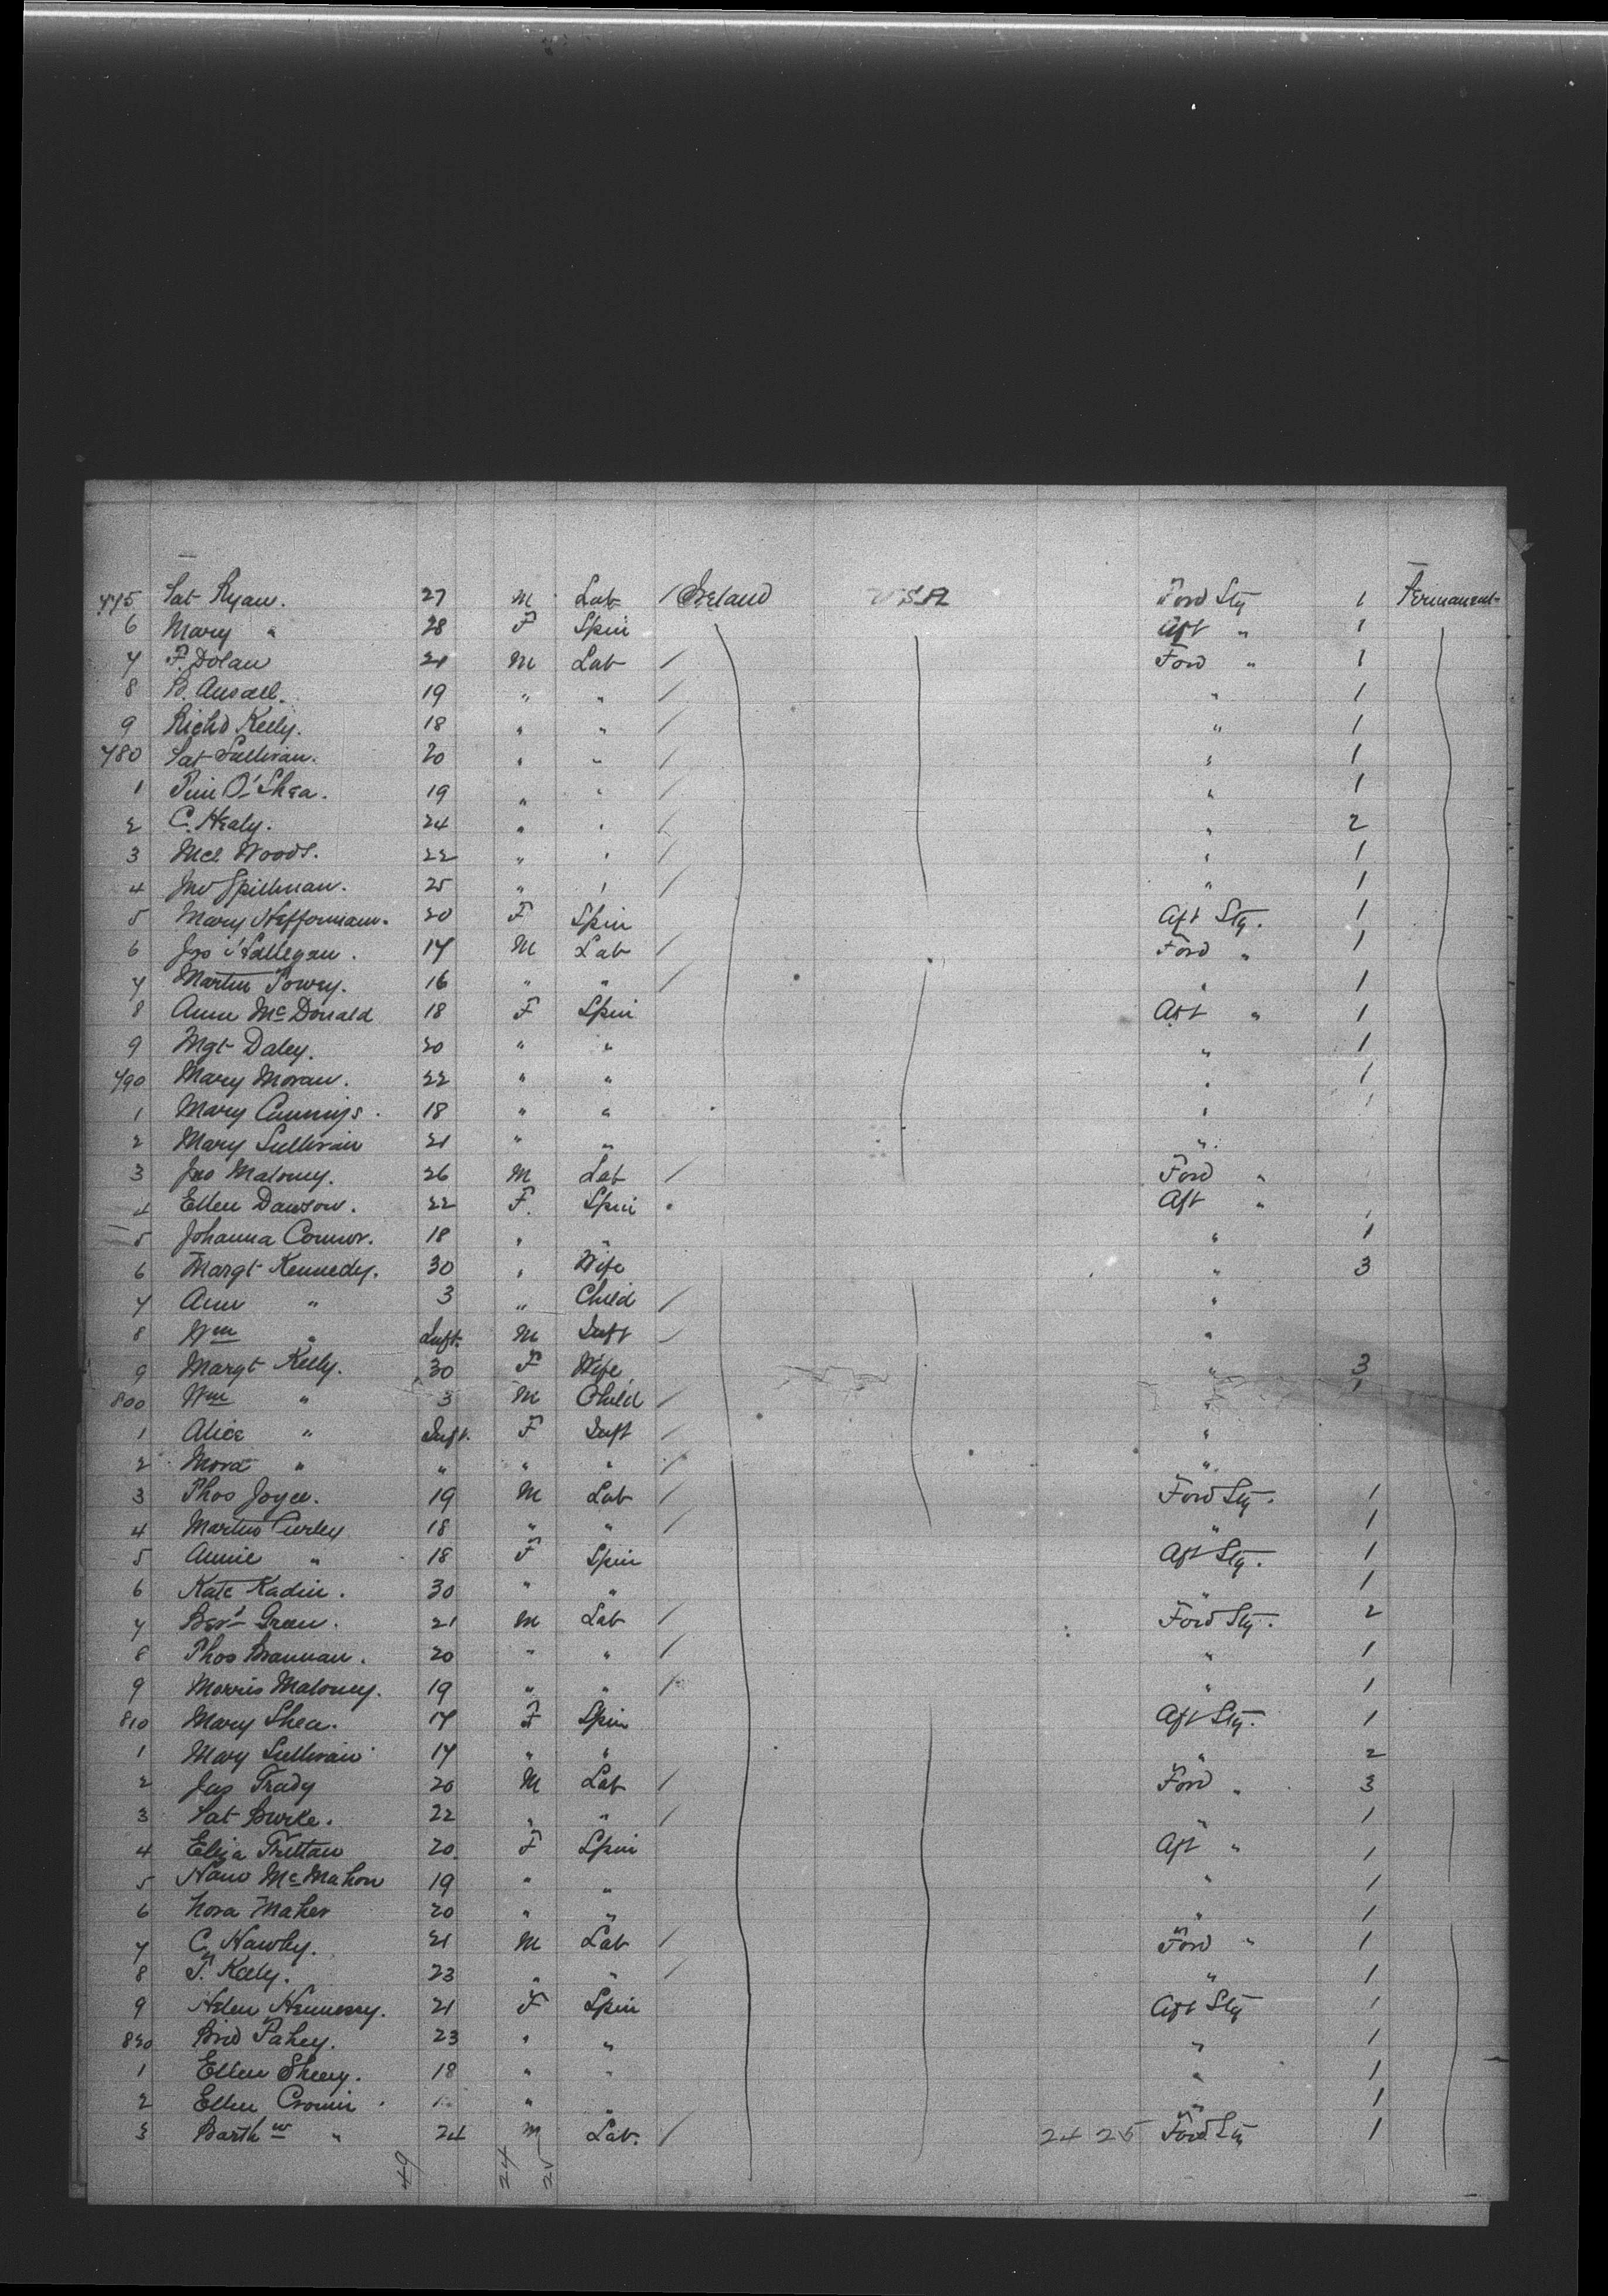 775 Pat Ryan. 27 M Lab / Ireland USA Ford Stg 1 Permanent
6 Mary " 28 F Spin Aft " 1
7 F. Dolan 21 M Lab / Ford " 1
8 B. 19 " " / " 1
9 Richd Kelly. 18 " " / " 1
780 Pat Sullivan. 20 " " / " 1
1 Tim O'Shea. 19 " " / " 1
2 C. Healy. 24 " " / " 2
3 Mcl Woods. 22 " " / " 1
4 Jno Spillman. 25 " " / " 1
5 Mary Heffernan. 20 F Spin Aft Stg. 1
6 Jno 17 M Lab / Ford " 1
7 Martin Towey. 16 " " / " 1
8 Anne McDonald 18 F Spin Aft " 1
9 Mgt Daley. 20 " " " 1
790 Mary Moran. 22 " " " 1
1 Mary Cummings. 18 " " " 1
2 Mary Sullivan 21 " " "
3 Jno Maloney. 26 M Lab / Ford "
4 Ellen Dawson. 22 F. Spin Aft " 1
5 Johanna Connor. 18 " " " 1
6 Margt Kennedy. 30 " Wife " 3
7 Ann " 3 " Child / "
8 Wm " Inft. M Inft / "
9 Margt Kelly. 30 F Wife " 3
800 Wm " 3 M Child / "
1 Alice " Inft. F Inft / "
2 Nora " " " " / "
3 Thos Joyce. 19 M Lab / Ford Stg. 1
4 Martin Curley 18 " " / " 1
5 Annie " 18 F Spin Aft Stg. 1
6 Kate Kadin. 30 " " " 1
7 Green. 21 M Lab / Ford Stg. 2
8 Thos Brannan. 20 " " / " 1
9 Morris Maloney. 19 " " / " 1
810 Mary Shea. 17 F Spin Aft Stg. 1
1 Mary Sullivan 17 " " " 2
2 Jas Grady 20 M Lab / Ford " 3
3 Pat Burke. 22 " " / " 1
4 Eliza 20. F Spin Aft " 1
5 McMahon 19 " " " 1
6 Nora Maher 20 " " " 1
7 C. Hawley. 21 M Lab / Ford " 1
8 T. Kelly. 23 " " / " 1
9 Helen Hennessy. 21 F Spin Aft Stg 1
820 Brid Fahey. 23 " " " 1
1 Ellen Sheey. 18 " " " 1
2 Ellen Cronin. " " " 1
3 Barthw " 24 M Lab. / 24 25 Ford Stg 1
49 24 25